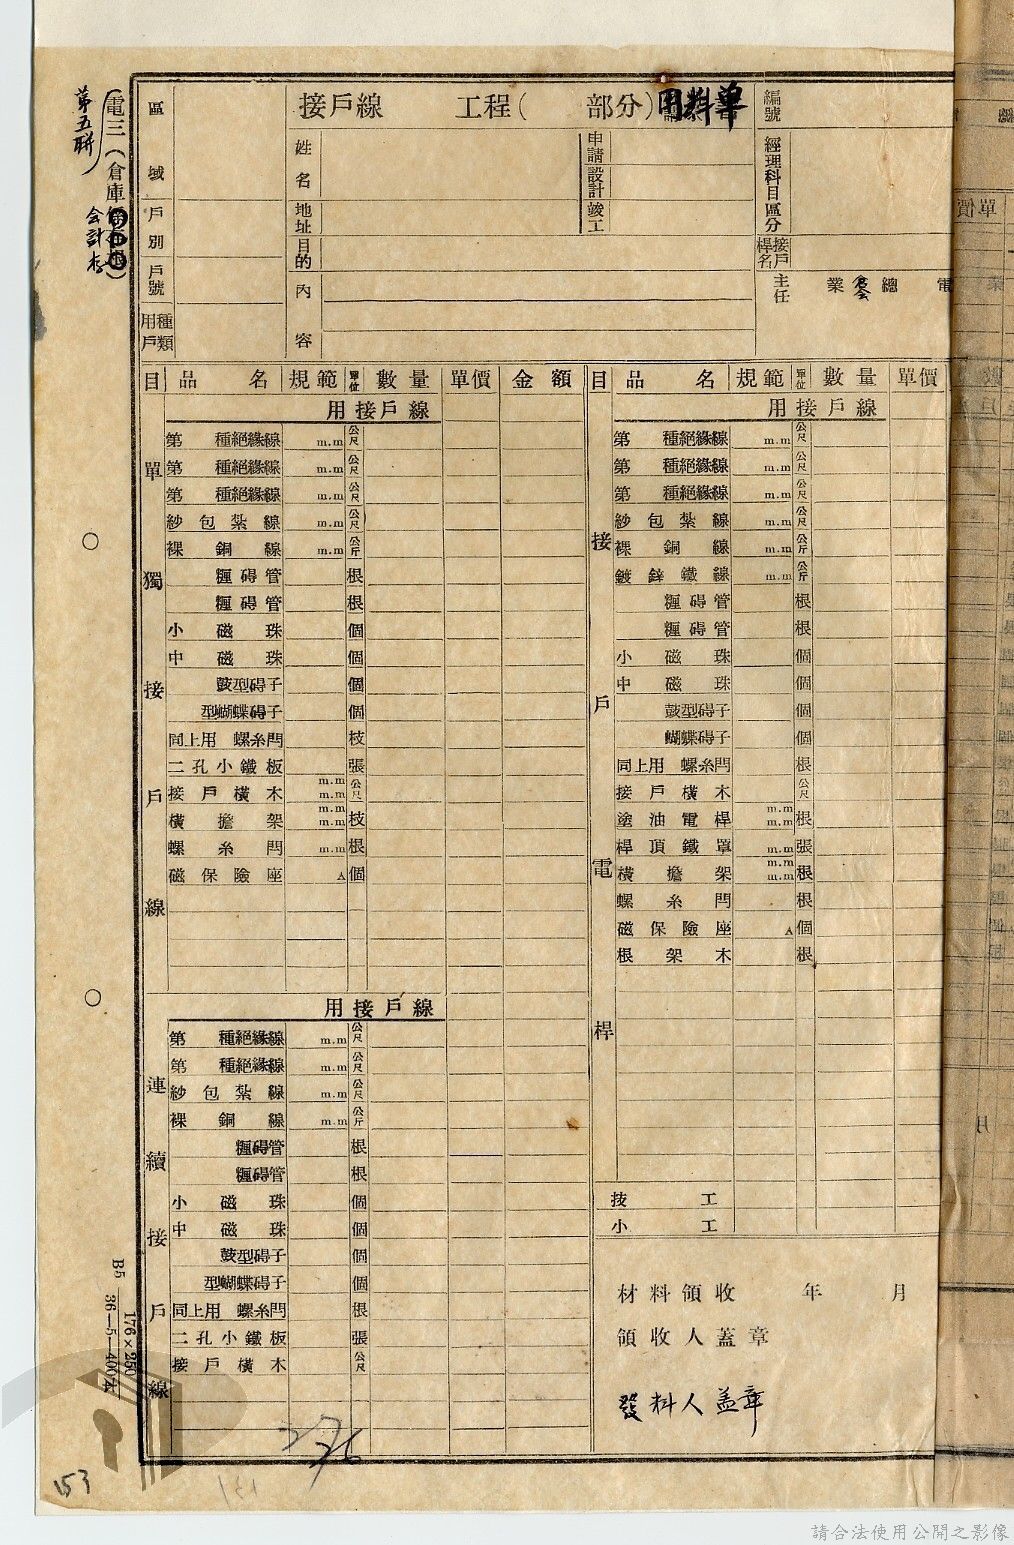 第五聯
電三（倉庫
会計存
接戶線 工程（ 部分）用料單
編號
區域
戶別
戶號
用戶種類
姓名
地址
目的
內容
申請
設計
竣工
經理科目區分
接戶桿名
主任 業 總 電
目 品名 規範 單位 數量 單價 金額
單獨接戶線
用接戶線
第 種絕緣線 m.m 公尺
第 種絕緣線 m.m 公尺
第 種絕緣線 m.m 公尺
紗包紮線 m.m 公尺
裸銅線 m.m 公斤
糎碍管 根
糎碍管 根
小磁珠 個
中磁珠 個
鼓型碍子 個
型蝴蝶碍子 個
同上用 螺糸閂 枝
二孔小鐵板 張
接戶橫木 m.m m.m 公尺
橫擔架 m.m m.m 枝
螺糸閂 m.m 根
磁保險座 A 個
連續接戶線
用接戶線
第 種絕緣線 m.m 公尺
第 種絕緣線 m.m 公尺
紗包紮線 m.m 公尺
裸銅線 m.m 公斤
糎碍管 根
糎碍管 根
小磁珠 個
中磁珠 個
鼓型碍子 個
型蝴蝶碍子 個
同上用 螺糸閂 根
二孔小鐵板 張
接戶橫木 公尺
目 品名 規範 單位 數量 單價
接戶電桿
用接戶線
第 種絕緣線 m.m 公尺
第 種絕緣線 m.m 公尺
第 種絕緣線 m.m 公尺
紗包紮線 m.m 公尺
裸銅線 m.m 公斤
鍍鋅鐵線 m.m 公斤
糎碍管 根
糎碍管 根
小磁珠 個
中磁珠 個
鼓型碍子 個
蝴蝶碍子 個
同上用 螺糸閂 根
接戶橫木 公尺
塗油電桿 m.m m.m 根
桿頂鐵罩 m.m 張
橫擔架 m.m m.m 根
螺糸閂 根
磁保險座 A 個
根架木 根
技工
小工
材料領收 年 月
領收人蓋章
發料人盖章
B5 176×250
36—5—400本
153
131
請合法使用公開之影像